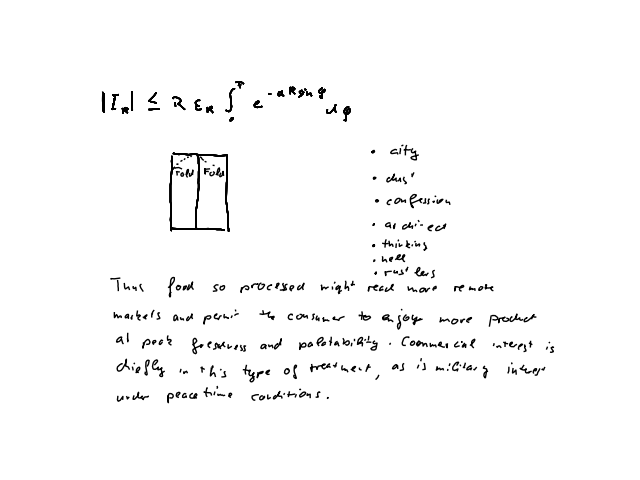 |I_R| ≤ R ε_R ∫_0^π e^{-aR sin φ} dφ
Fold Fold
• city
• dust
• confession
• architect
• thinking
• hell
• rustlers
Thus food so processed might reach more remote
markets and permit the consumer to enjoy more product
at peak freshness and palatability. Commercial interest is
chiefly in this type of treatment, as is military interest
under peacetime conditions.